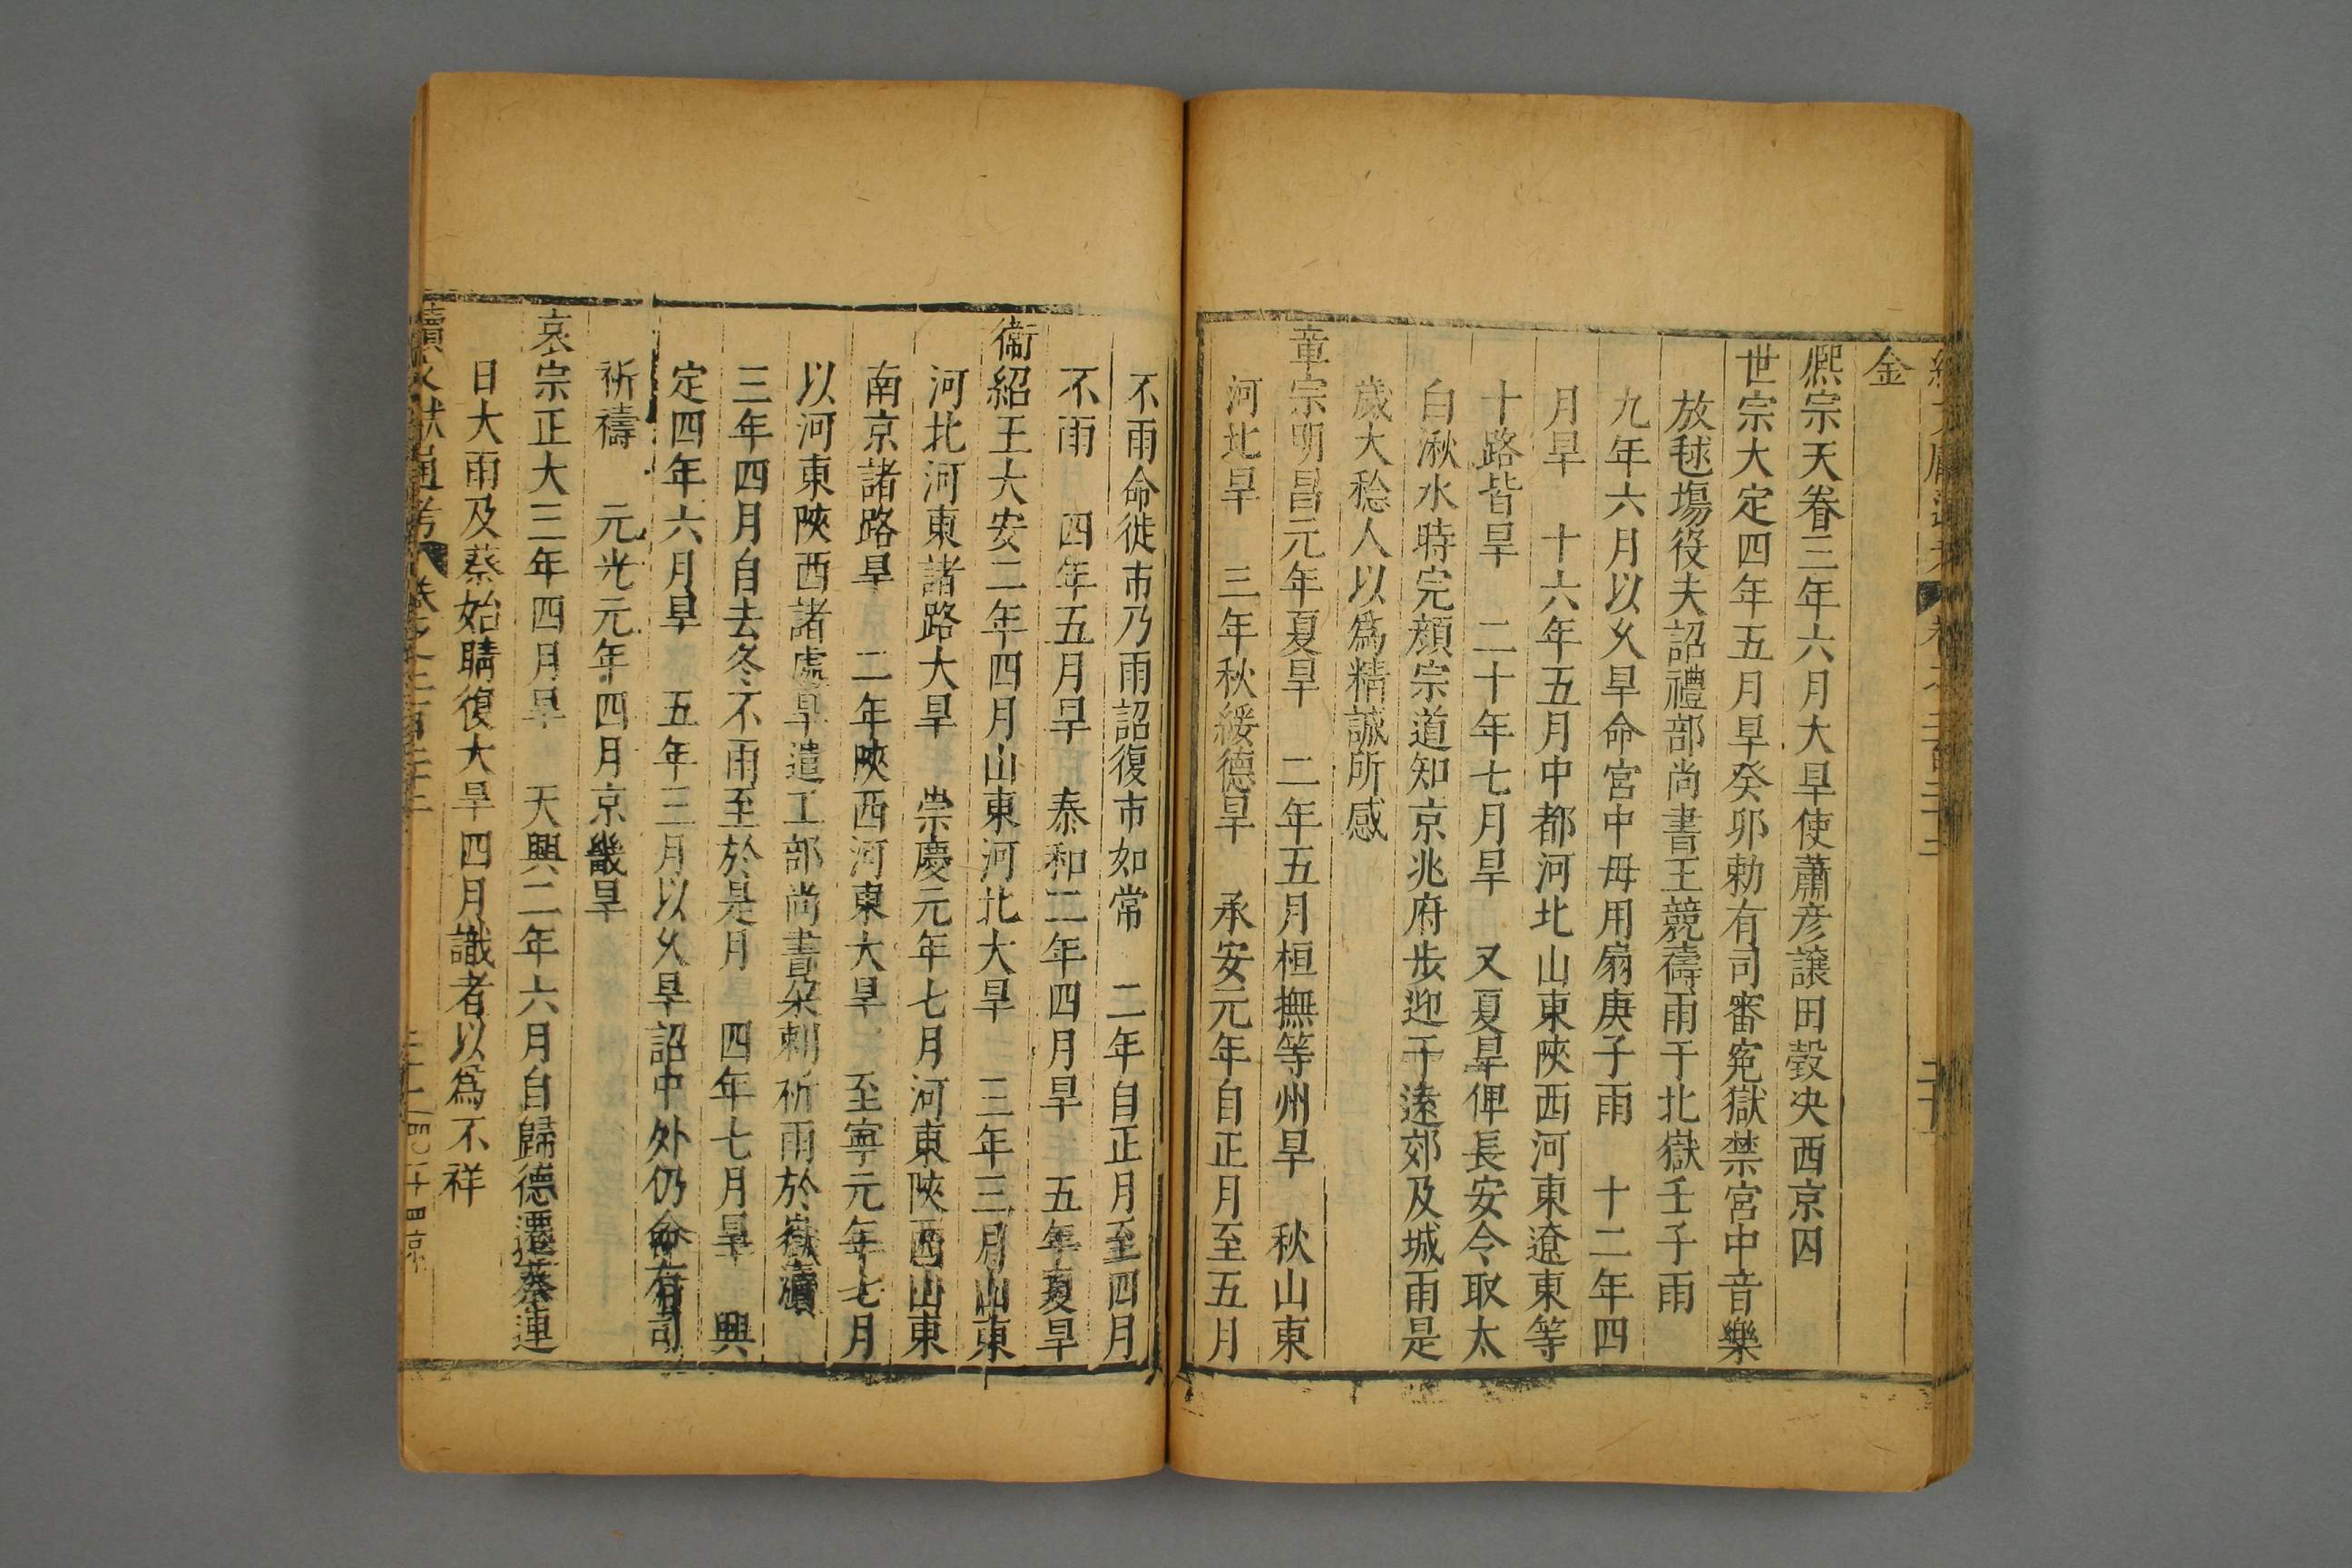 金
熈宗天眷三年六月大旱使蕭彦譲田瑴决西京囚
世宗大定四年五月旱癸卯勅有司審寃獄禁宮中音樂
放毬塲役夫詔禮部尚書王競禱雨于北嶽壬子雨
九年六月以乆旱命宮中毋用扇庚子雨　十二年四
月旱　十六年五月中都河北山東陜西河東遼東等
十路皆旱　二十年七月旱　又夏旱俾長安令取太
白湫水時完顔宗道知京兆府步迎于遠郊及城雨是
歲大稔人以爲精誠所感
章宗明昌元年夏旱　二年五月桓撫等州旱　秋山東
河北旱　三年秋綏德旱　承安元年自正月至五月
不雨命徙市乃雨詔復市如常　二年自正月至四月
不雨　四年五月旱　泰和二年四月旱　五年夏旱
衞紹王大安二年四月山東河北大旱　三年三月山東
河北河東諸路大旱　崇慶元年七月河東陜西山東
南京諸路旱　二年陜西河東大旱　至寧元年七月
以河東陜西諸處旱遣工部尚書朶剌祈雨於嶽瀆
三年四月自去冬不雨至於是月　四年七月旱　興
定四年六月旱　五年三月以乆旱詔中外仍命有司
祈禱　元光元年四月京畿旱
哀宗正大三年四月旱　天興二年六月自歸德遷蔡連
日大雨及蔡始睛復大旱四月識者以爲不祥
續文獻通考　卷之二百二十二